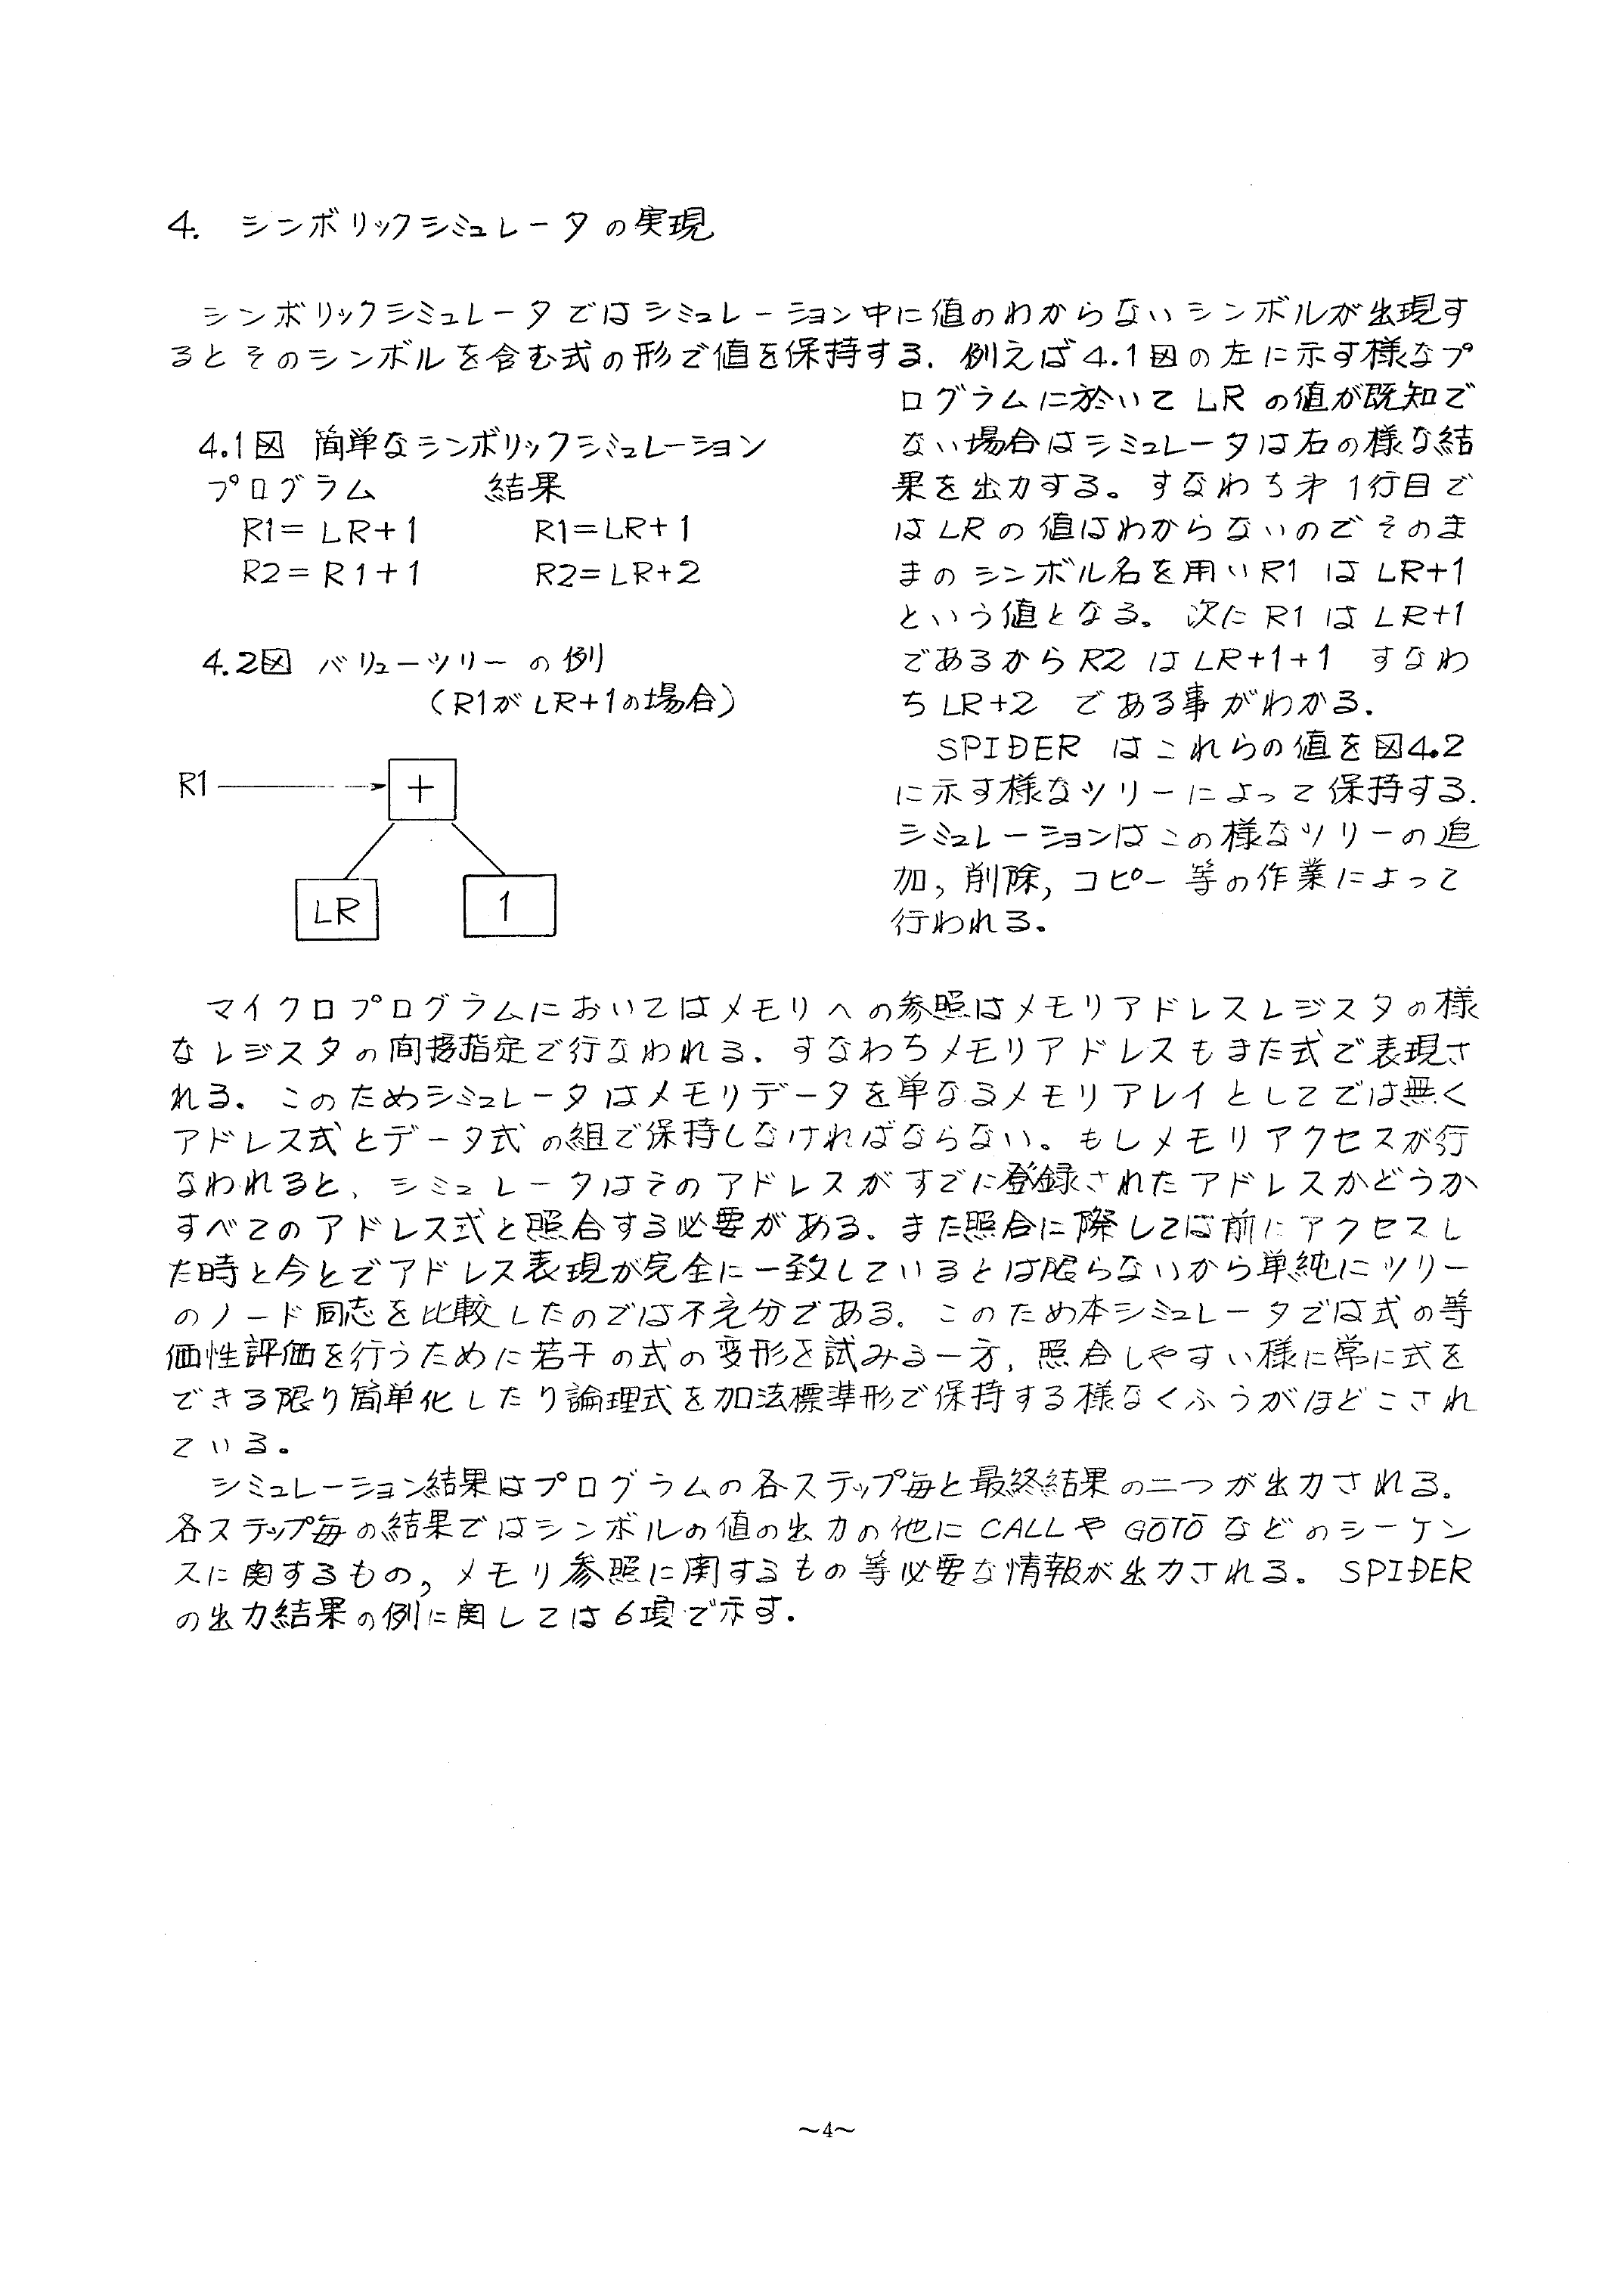 4. シンボリックシミュレータの実現
シンボリックシミュレータではシミュレーション中に値のわからないシンボルが出現す
るとそのシンボルを含む式の形で値を保持する. 例えば4.1図の左に示す様なプ
ログラムに於いてLRの値が既知で
ない場合はシミュレータは右の様な結
果を出力する。すなわち才1行目で
はLRの値はわからないのでそのま
まのシンボル名を用いR1はLR+1
という値となる。次にR1はLR+1
であるからR2はLR+1+1 すなわ
ちLR+2 である事がわかる.
SPIDER はこれらの値を図4.2
に示す様なツリーによって保持する.
シミュレーションはこの様なツリーの追
加, 削除, コピー等の作業によって
行われる。
4.1図 簡単なシンボリックシミュレーション
プログラム 結果
R1=LR+1 R1=LR+1
R2=R1+1 R2=LR+2
4.2図 バリューツリーの例
(R1がLR+1の場合)
R1
+
LR
1
マイクロプログラムにおいてはメモリへの参照はメモリアドレスレジスタの様
なレジスタの間接指定で行なわれる. すなわちメモリアドレスもまた式で表現さ
れる. このためシミュレータはメモリデータを単なるメモリアレイとしてでは無く
アドレス式とデータ式の組で保持しなければならない。もしメモリアクセスが行
なわれると、シミュレータはそのアドレスがすでに登録されたアドレスかどうか
すべてのアドレス式と照合する必要がある. また照合に際しては前にアクセスし
た時と今とでアドレス表現が完全に一致しているとは限らないから単純にツリー
のノード同志を比較したのでは不充分である. このため本シミュレータでは式の等
価性評価を行うために若干の式の変形を試みる一方, 照合しやすい様に常に式を
できる限り簡単化したり論理式を加法標準形で保持する様なくふうがほどこされ
ている。
シミュレーション結果はプログラムの各ステップ毎と最終結果の二つが出力される。
各ステップ毎の結果ではシンボルの値の出力の他にCALLやGOTOなどのシーケン
スに関するもの, メモリ参照に関するもの等必要な情報が出力される。SPIDER
の出力結果の例に関しては6項で示す.
~4~